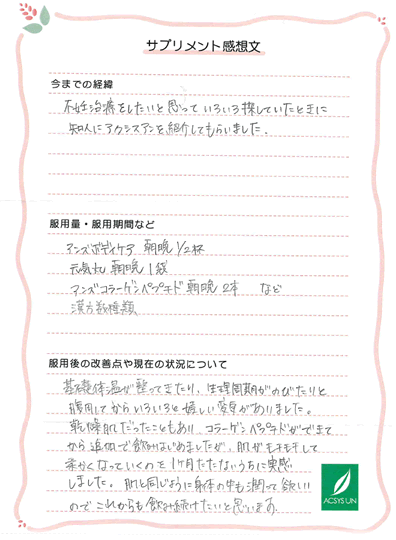 サプリメント感想文
今までの経緯
不妊治療をしたいと思っていろいろ探していたときに
知人にアクシスアンを紹介してもらいました。
服用量・服用期間など
アンズボディケア 朝晩 1/2杯
元気丸 朝晩 1袋
アンズコラーゲンペプチド 朝晩 2本 など
漢方数種類
服用後の改善点や現在の状況について
基礎体温が整ってきたり、生理周期がのびたりと
服用してからいろいろ嬉しい変身がありました。
乾燥肌だったこともあり コラーゲンペプチドがでまて
から追加で飲みはじめましたが、肌がモチモチして
柔かくなっていくのを1ヶ月たたないうちに実感
しました。肌と同じように身体の中も潤って欲しい
のでこれからも飲み続けたいと思います。
ACSYS UN